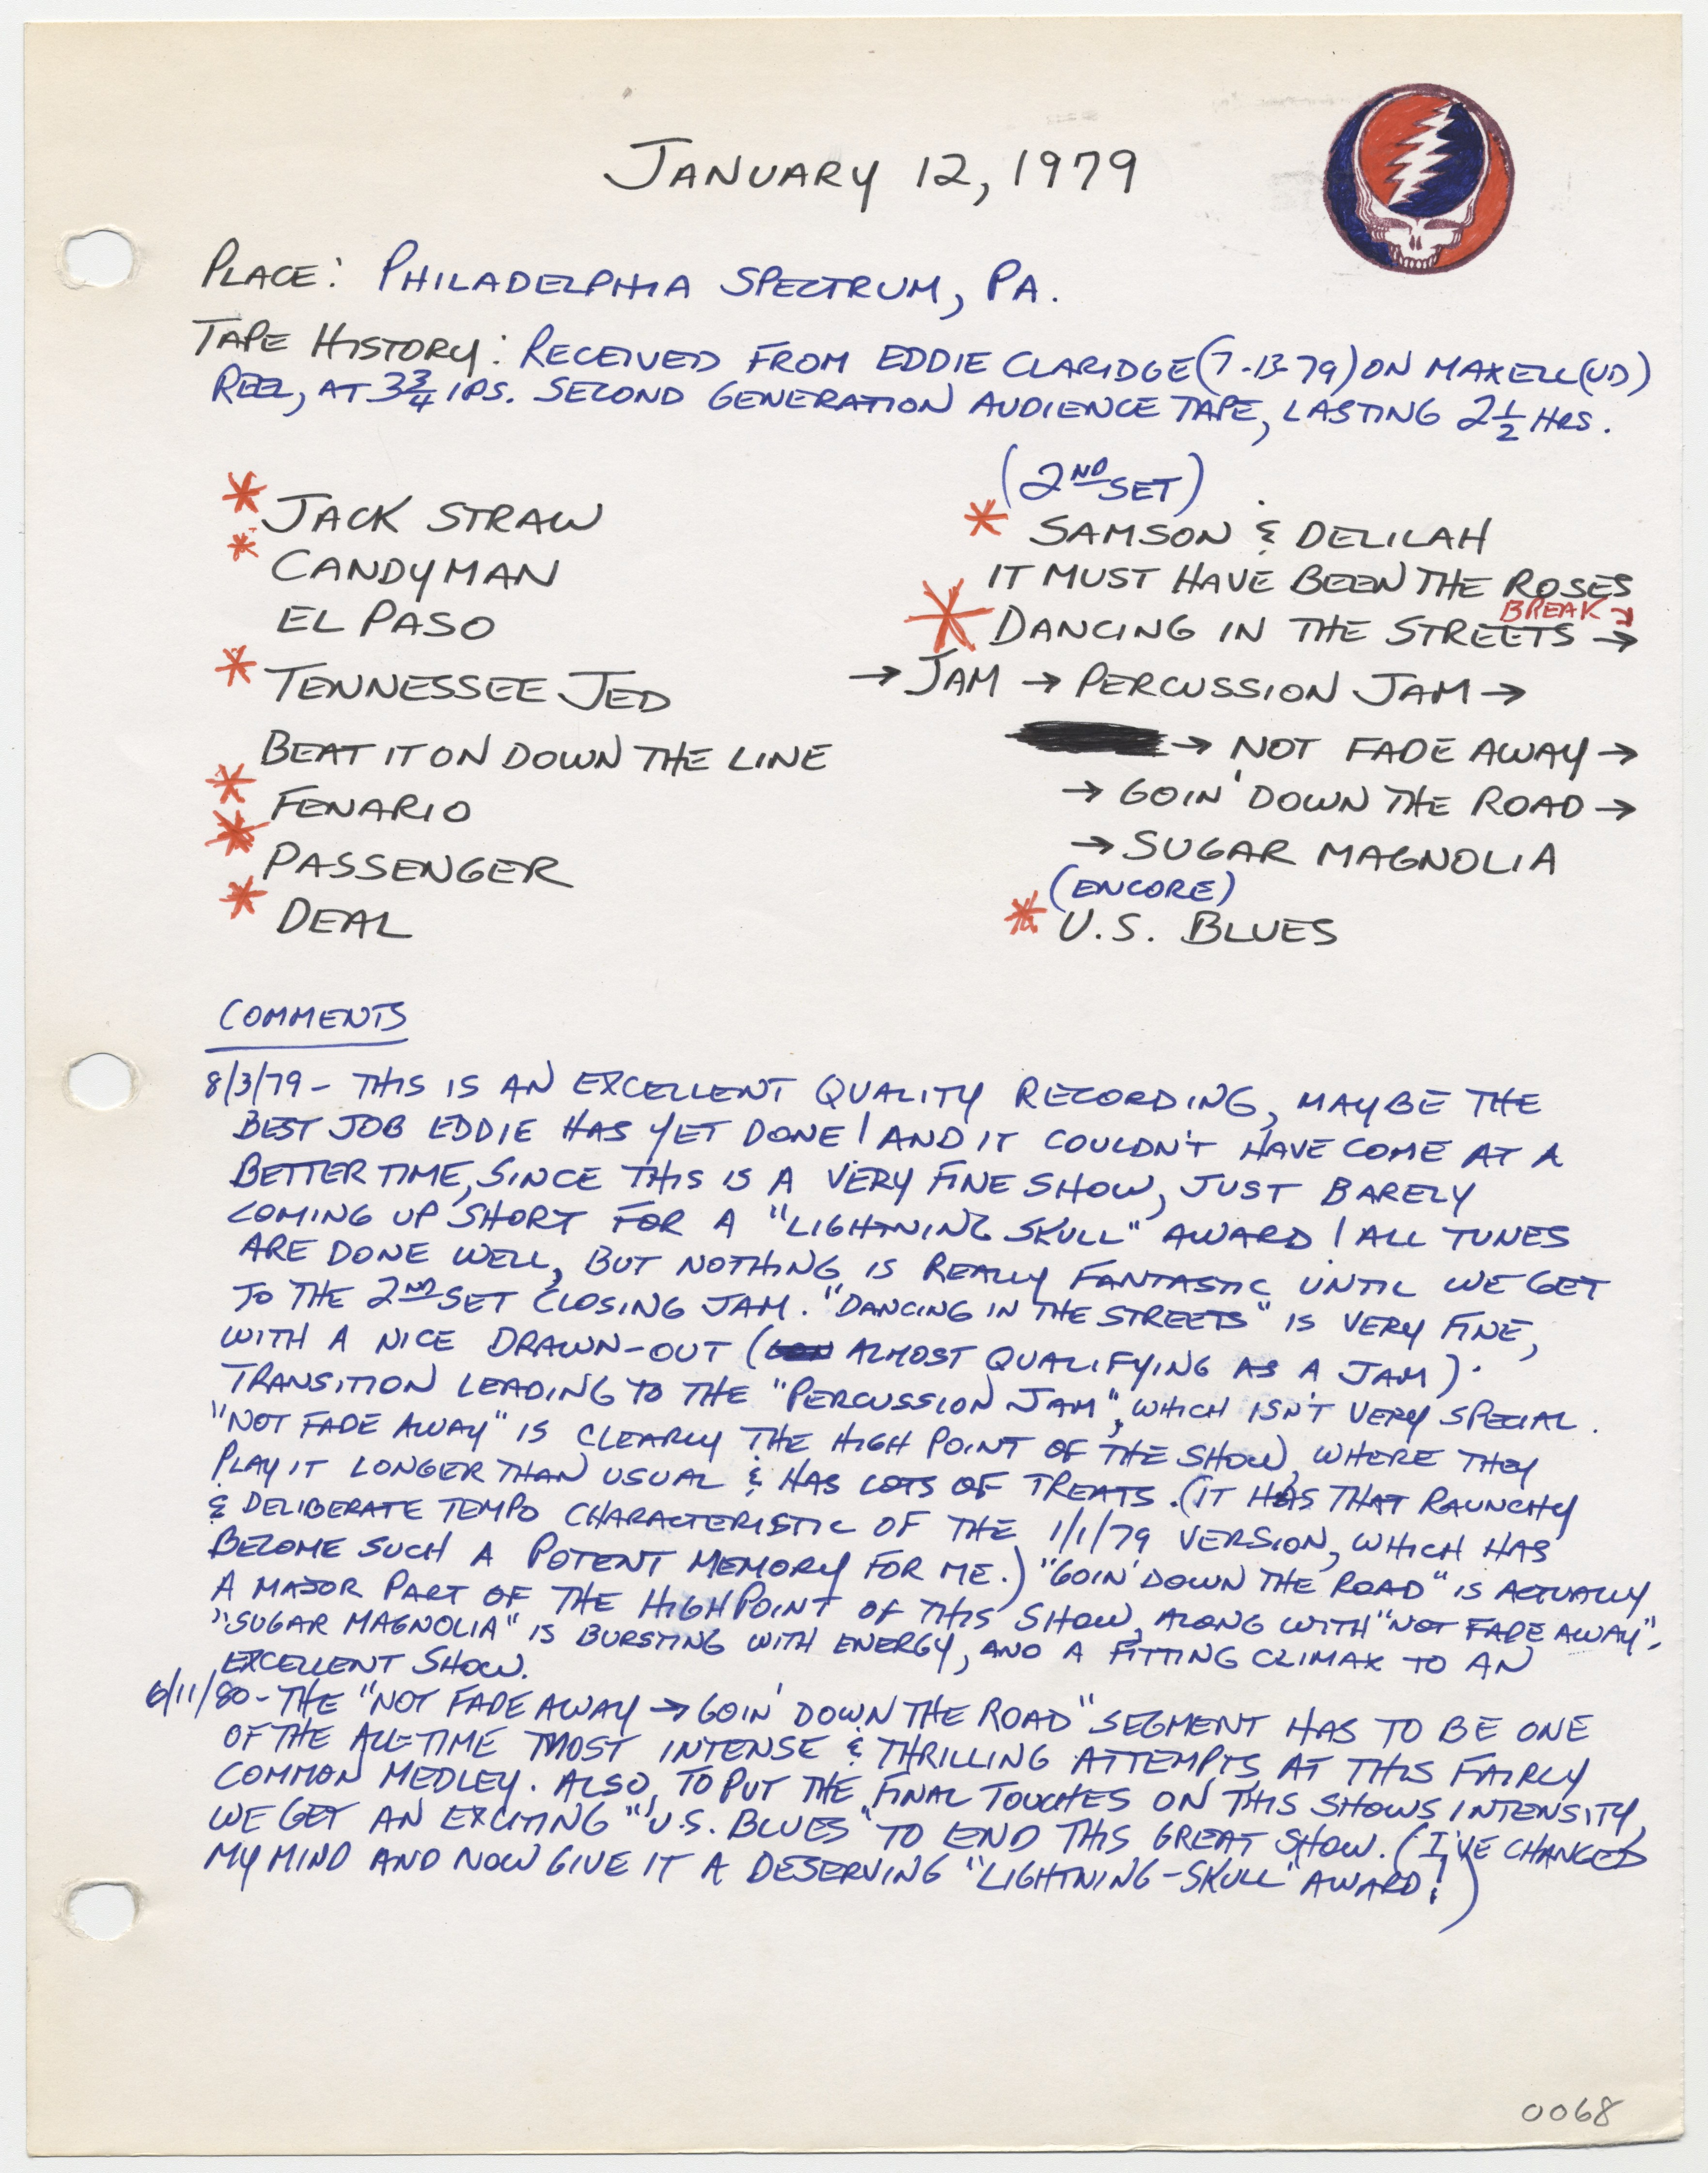 JANUARY 12, 1979
PLACE: PHILADELPHIA SPECTRUM, PA.
TAPE HISTORY: RECEIVED FROM EDDIE CLARIDGE (7-13-79) ON MAXELL (UD)
REEL, AT 3 3/4 IPS. SECOND GENERATION AUDIENCE TAPE, LASTING 2 1/2 HRS.
* JACK STRAW
* CANDYMAN
EL PASO
* TENNESSEE JED
BEAT IT ON DOWN THE LINE
* FENARIO
* PASSENGER
* DEAL
(2ND SET)
* SAMSON & DELILAH
IT MUST HAVE BEEN THE ROSES
BREAK →
* DANCING IN THE STREETS →
→ JAM → PERCUSSION JAM →
→ NOT FADE AWAY →
→ GOIN' DOWN THE ROAD →
→ SUGAR MAGNOLIA
(ENCORE)
* U.S. BLUES
COMMENTS
8/3/79 - THIS IS AN EXCELLENT QUALITY RECORDING, MAYBE THE
BEST JOB EDDIE HAS YET DONE! AND IT COULDN'T HAVE COME AT A
BETTER TIME, SINCE THIS IS A VERY FINE SHOW, JUST BARELY
COMING UP SHORT FOR A "LIGHTNING SKULL" AWARD! ALL TUNES
ARE DONE WELL, BUT NOTHING IS REALLY FANTASTIC UNTIL WE GET
TO THE 2ND SET CLOSING JAM. "DANCING IN THE STREETS" IS VERY FINE,
WITH A NICE DRAWN-OUT (ALMOST QUALIFYING AS A JAM).
TRANSITION LEADING TO THE "PERCUSSION JAM", WHICH ISN'T VERY SPECIAL.
"NOT FADE AWAY" IS CLEARLY THE HIGH POINT OF THE SHOW, WHERE THEY
PLAY IT LONGER THAN USUAL & HAS LOTS OF TREATS. (IT HAS THAT RAUNCHY
& DELIBERATE TEMPO CHARACTERISTIC OF THE 1/1/79 VERSION, WHICH HAS
BECOME SUCH A POTENT MEMORY FOR ME.) "GOIN' DOWN THE ROAD" IS ACTUALLY
A MAJOR PART OF THE HIGHPOINT OF THIS SHOW, ALONG WITH "NOT FADE AWAY".
"SUGAR MAGNOLIA" IS BURSTING WITH ENERGY, AND A FITTING CLIMAX TO AN
EXCELLENT SHOW.
6/11/80 - THE "NOT FADE AWAY → GOIN' DOWN THE ROAD" SEGMENT HAS TO BE ONE
OF THE ALL-TIME MOST INTENSE & THRILLING ATTEMPTS AT THIS FAIRLY
COMMON MEDLEY. ALSO, TO PUT THE FINAL TOUCHES ON THIS SHOWS INTENSITY,
WE GET AN EXCITING "U.S. BLUES" TO END THIS GREAT SHOW. (I'VE CHANGED
MY MIND AND NOW GIVE IT A DESERVING "LIGHTNING-SKULL" AWARD!)
0068